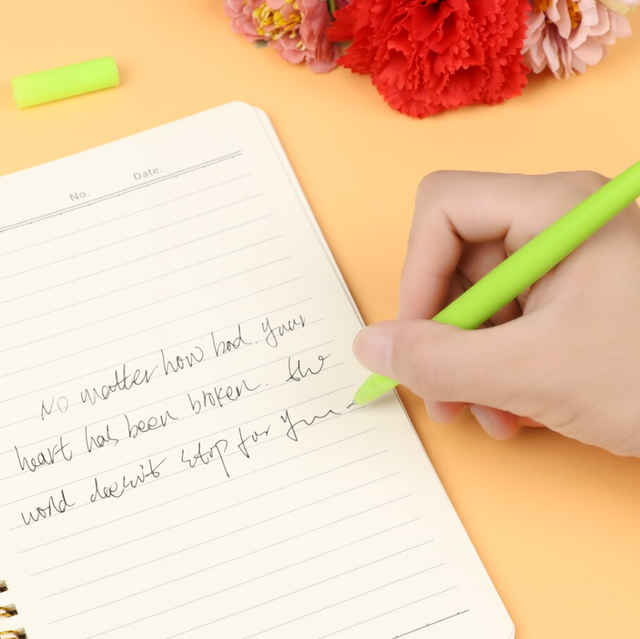 No. Date.
No matter how bad your
heart has been broken. the
world doesn't stop for you